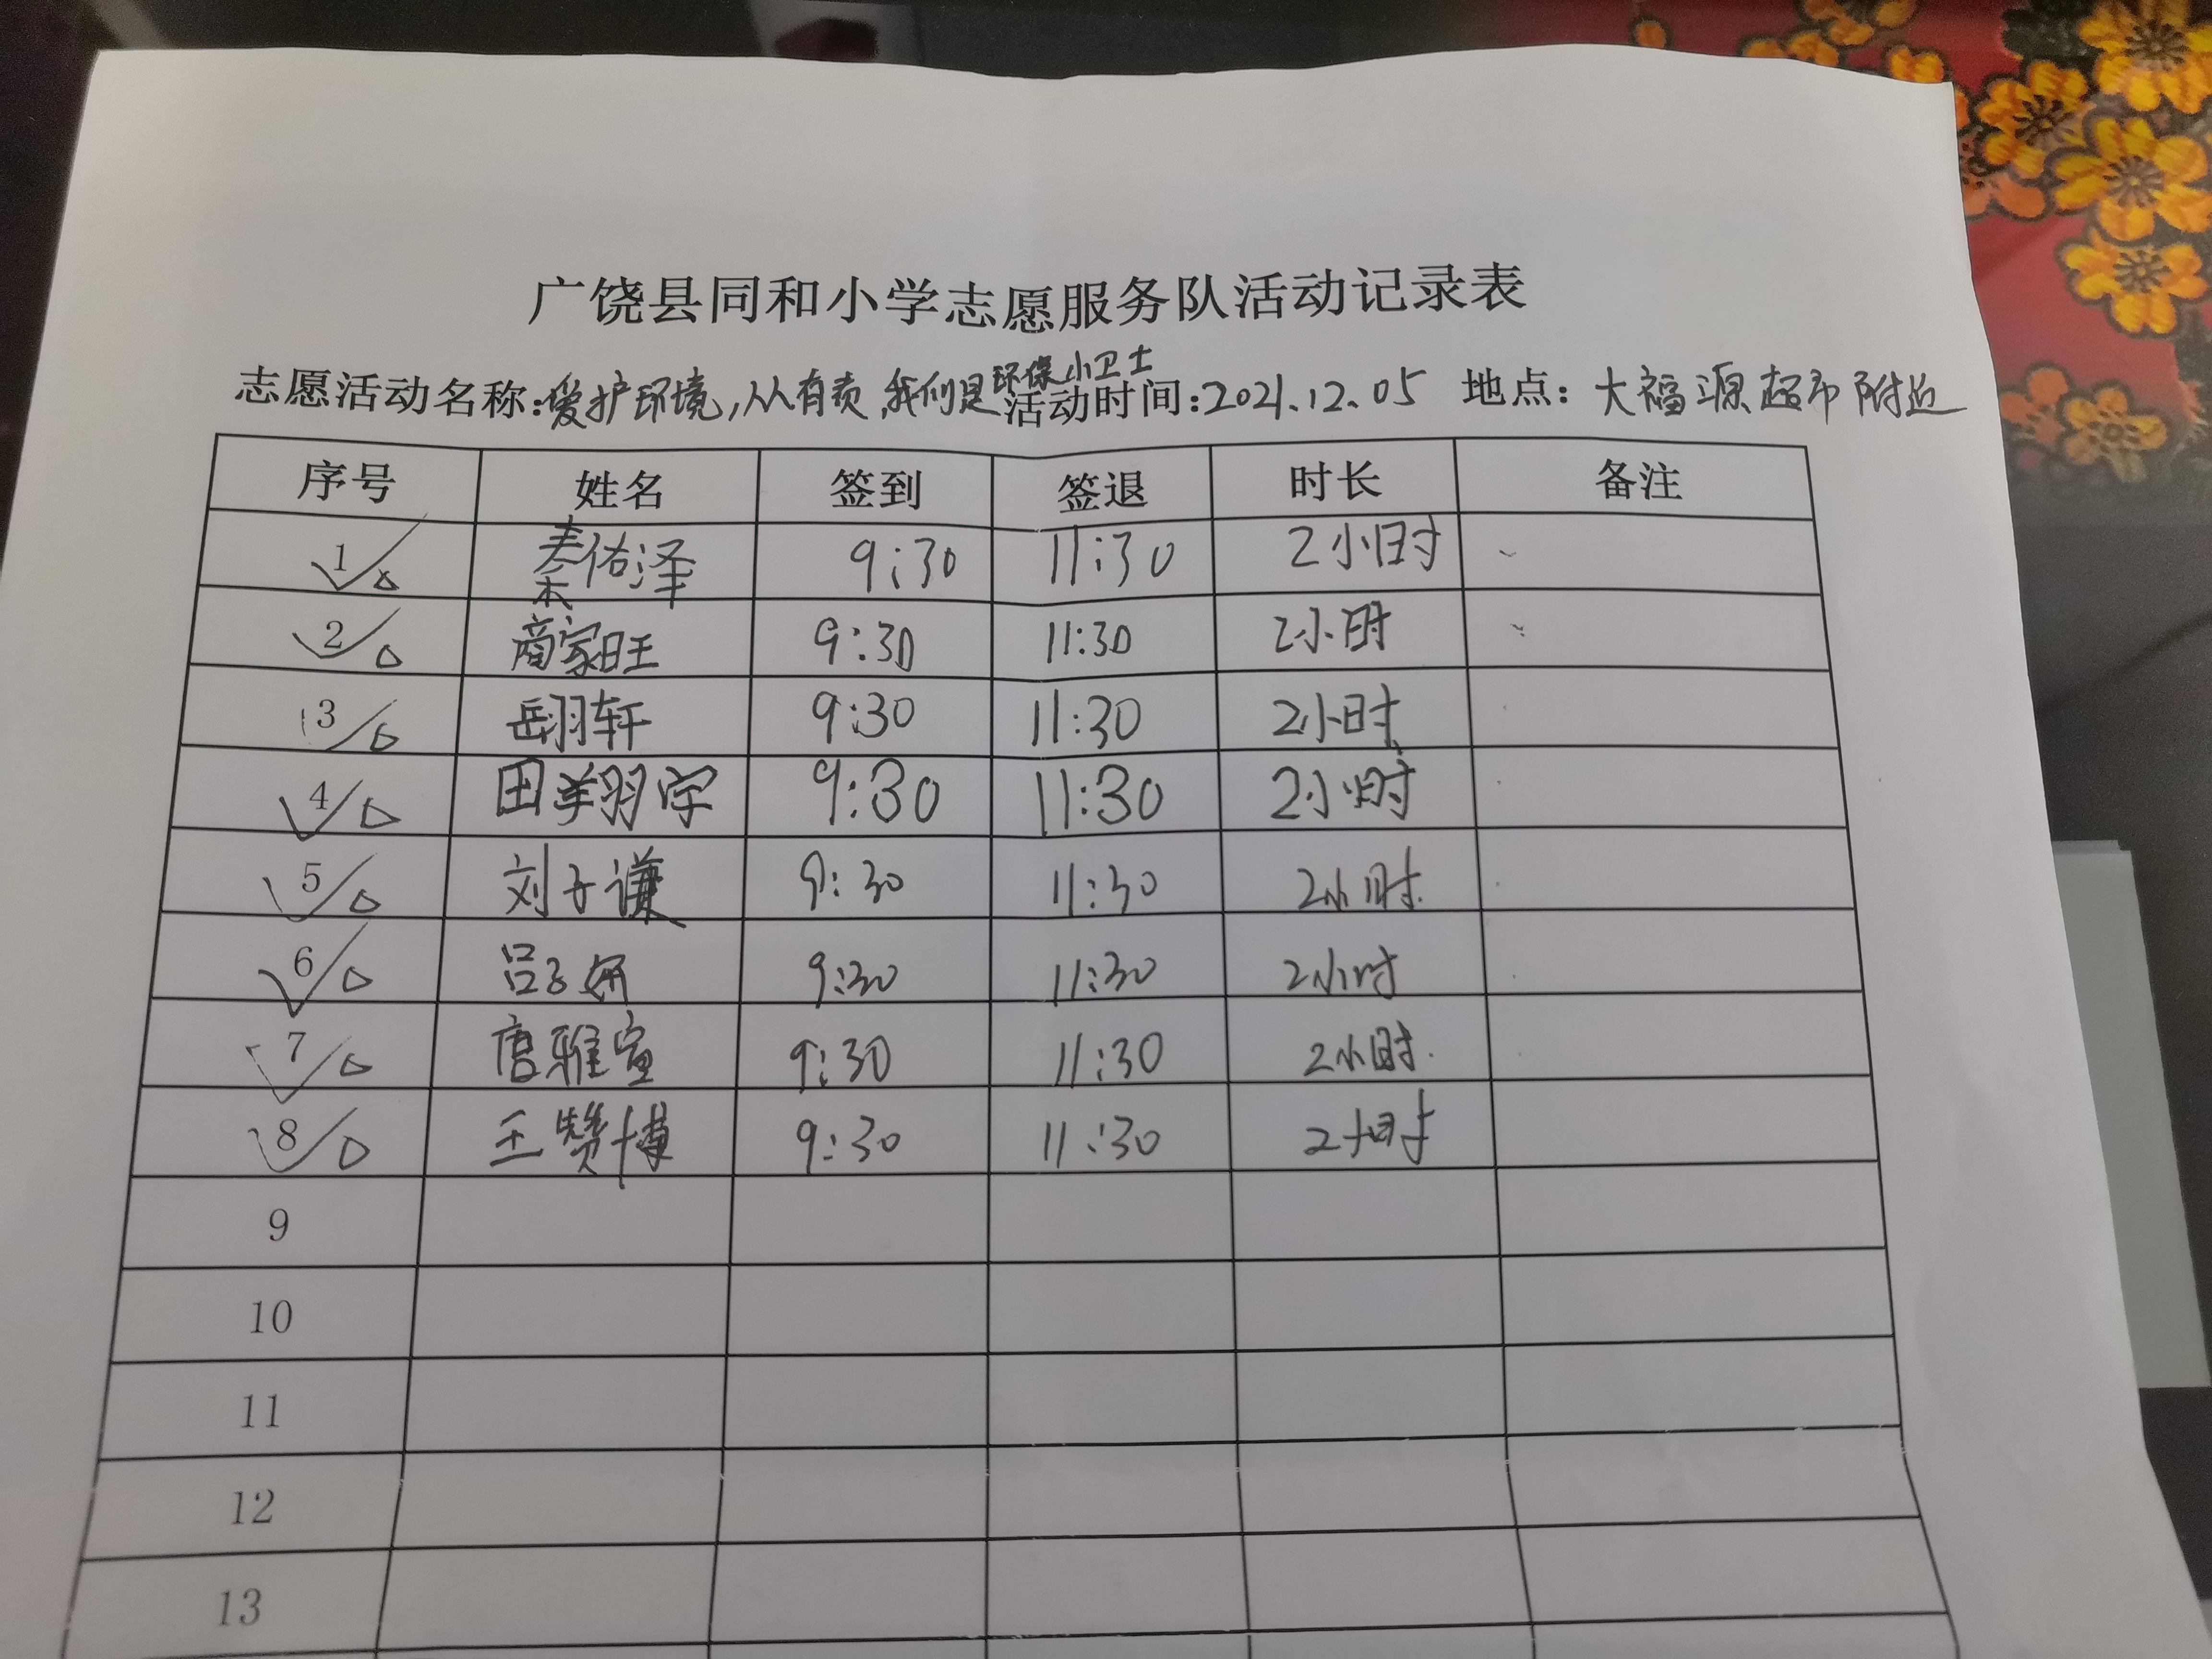 广饶县同和小学志愿服务队活动记录表
志愿活动名称:爱护环境,人人有责,我们是环保小卫士 活动时间:2021.12.05 地点:大福源超市附近
序号 姓名 签到 签退 时长 备注
1 秦佑泽 9:30 11:30 2小时
2 商家旺 9:30 11:30 2小时
3 岳翔轩 9:30 11:30 2小时
4 田翔宇 9:30 11:30 2小时
5 刘子谦 9:30 11:30 2小时
6 吕子妍 9:30 11:30 2小时
7 唐雅萱 9:30 11:30 2小时
8 王赞博 9:30 11:30 2小时
9
10
11
12
13